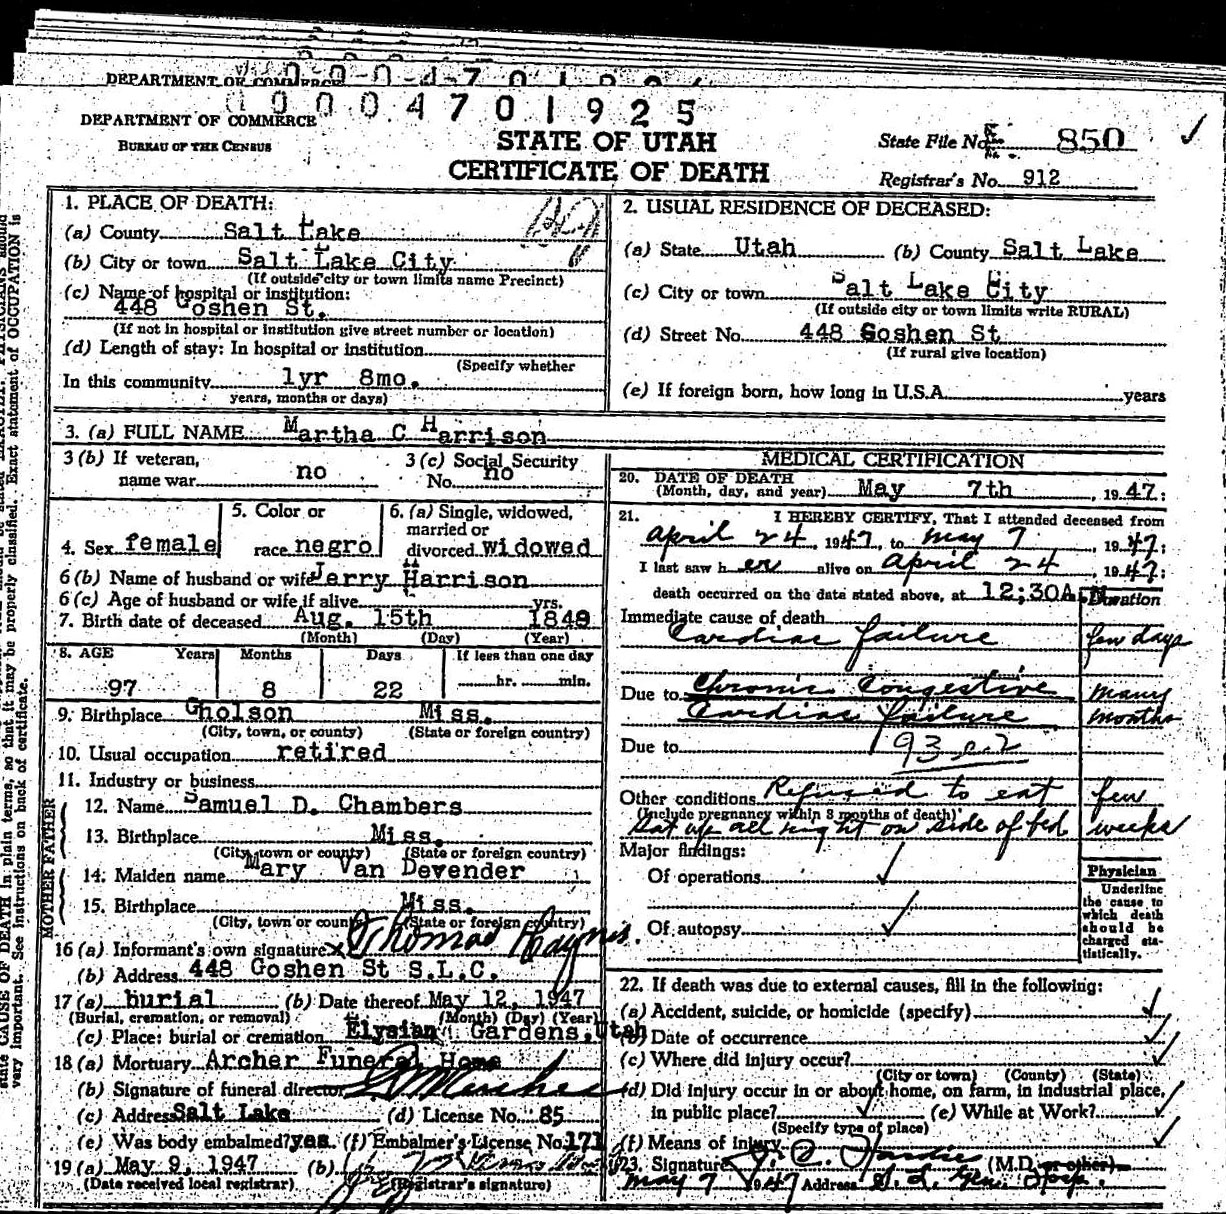 DEPARTMENT OF COMMERCE
00004701925
DEPARTMENT OF COMMERCE
BUREAU OF THE CENSUS
STATE OF UTAH
CERTIFICATE OF DEATH
State File No. 850
Registrar's No. 912
1. PLACE OF DEATH:
(a) County Salt Lake
(b) City or town Salt Lake City
(If outside city or town limits name Precinct)
(c) Name of hospital or institution:
448 Goshen St.
(If not in hospital or institution give street number or location)
(d) Length of stay: In hospital or institution
(Specify whether
In this community 1yr 8mo.
years, months or days)
2. USUAL RESIDENCE OF DECEASED:
(a) State Utah (b) County Salt Lake
(c) City or town Salt Lake City
(If outside city or town limits write RURAL)
(d) Street No. 448 Goshen St
(If rural give location)
(e) If foreign born, how long in U.S.A. years
3. (a) FULL NAME Martha C Harrison
3 (b) If veteran, name war no
3 (c) Social Security No. no
4. Sex female
5. Color or race negro
6. (a) Single, widowed, married or divorced widowed
6 (b) Name of husband or wife Jerry Harrison
6 (c) Age of husband or wife if alive yrs.
7. Birth date of deceased Aug. 15th 1849
(Month) (Day) (Year)
8. AGE Years Months Days If less than one day
97 8 22 hr. min.
9. Birthplace Gholson Miss.
(City, town, or county) (State or foreign country)
10. Usual occupation retired
11. Industry or business
FATHER
12. Name Samuel D. Chambers
13. Birthplace Miss.
(City, town or county) (State or foreign country)
MOTHER
14. Maiden name Mary Van Devender
15. Birthplace Miss.
(City, town or county) (State or foreign country)
16 (a) Informant's own signature x Thomas
(b) Address 448 Goshen St S.L.C.
17 (a) burial (b) Date thereof May 12, 1947
(Burial, cremation, or removal) (Month) (Day) (Year)
(c) Place: burial or cremation Elysian Gardens, Utah
18 (a) Mortuary Archer Funeral Home
(b) Signature of funeral director
(c) Address Salt Lake (d) License No. 85
(e) Was body embalmed? yes (f) Embalmer's License No. 171
19 (a) May 9, 1947 (b)
(Date received local registrar) (Registrar's signature)
MEDICAL CERTIFICATION
20. DATE OF DEATH
(Month, day, and year) May 7th, 1947:
21. I HEREBY CERTIFY, That I attended deceased from
April 24, 1947, to May 7, 1947:
I last saw her alive on April 24, 1947:
death occurred on the date stated above, at 12;30A.M.
Duration
Immediate cause of death
Cardiac failure few days
Due to Chronic Congestive many
Cardiac failure months
Due to
Other conditions Refused to eat few
(Include pregnancy within 3 months of death)
Sat up all night on side of bed weeks
Major findings:
Of operations
Of autopsy
Physician
Underline the cause to which death should be charged statistically.
22. If death was due to external causes, fill in the following:
(a) Accident, suicide, or homicide (specify)
(b) Date of occurrence
(c) Where did injury occur?
(City or town) (County) (State)
(d) Did injury occur in or about home, on farm, in industrial place,
in public place? (e) While at Work?
(Specify type of place)
(f) Means of injury
23. Signature (M.D. or other)
May 7 1947 Address S. L. Gen. Hosp.
state CAUSE OF DEATH in plain terms, so that it may be properly classified. Exact statement of OCCUPATION is
very important. See instructions on back of certificate.